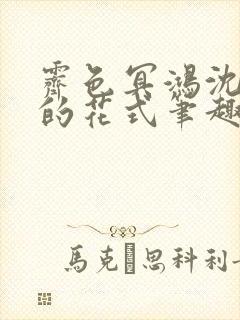 霽色冥鴻沈
的花式筆趣
馬克思科利